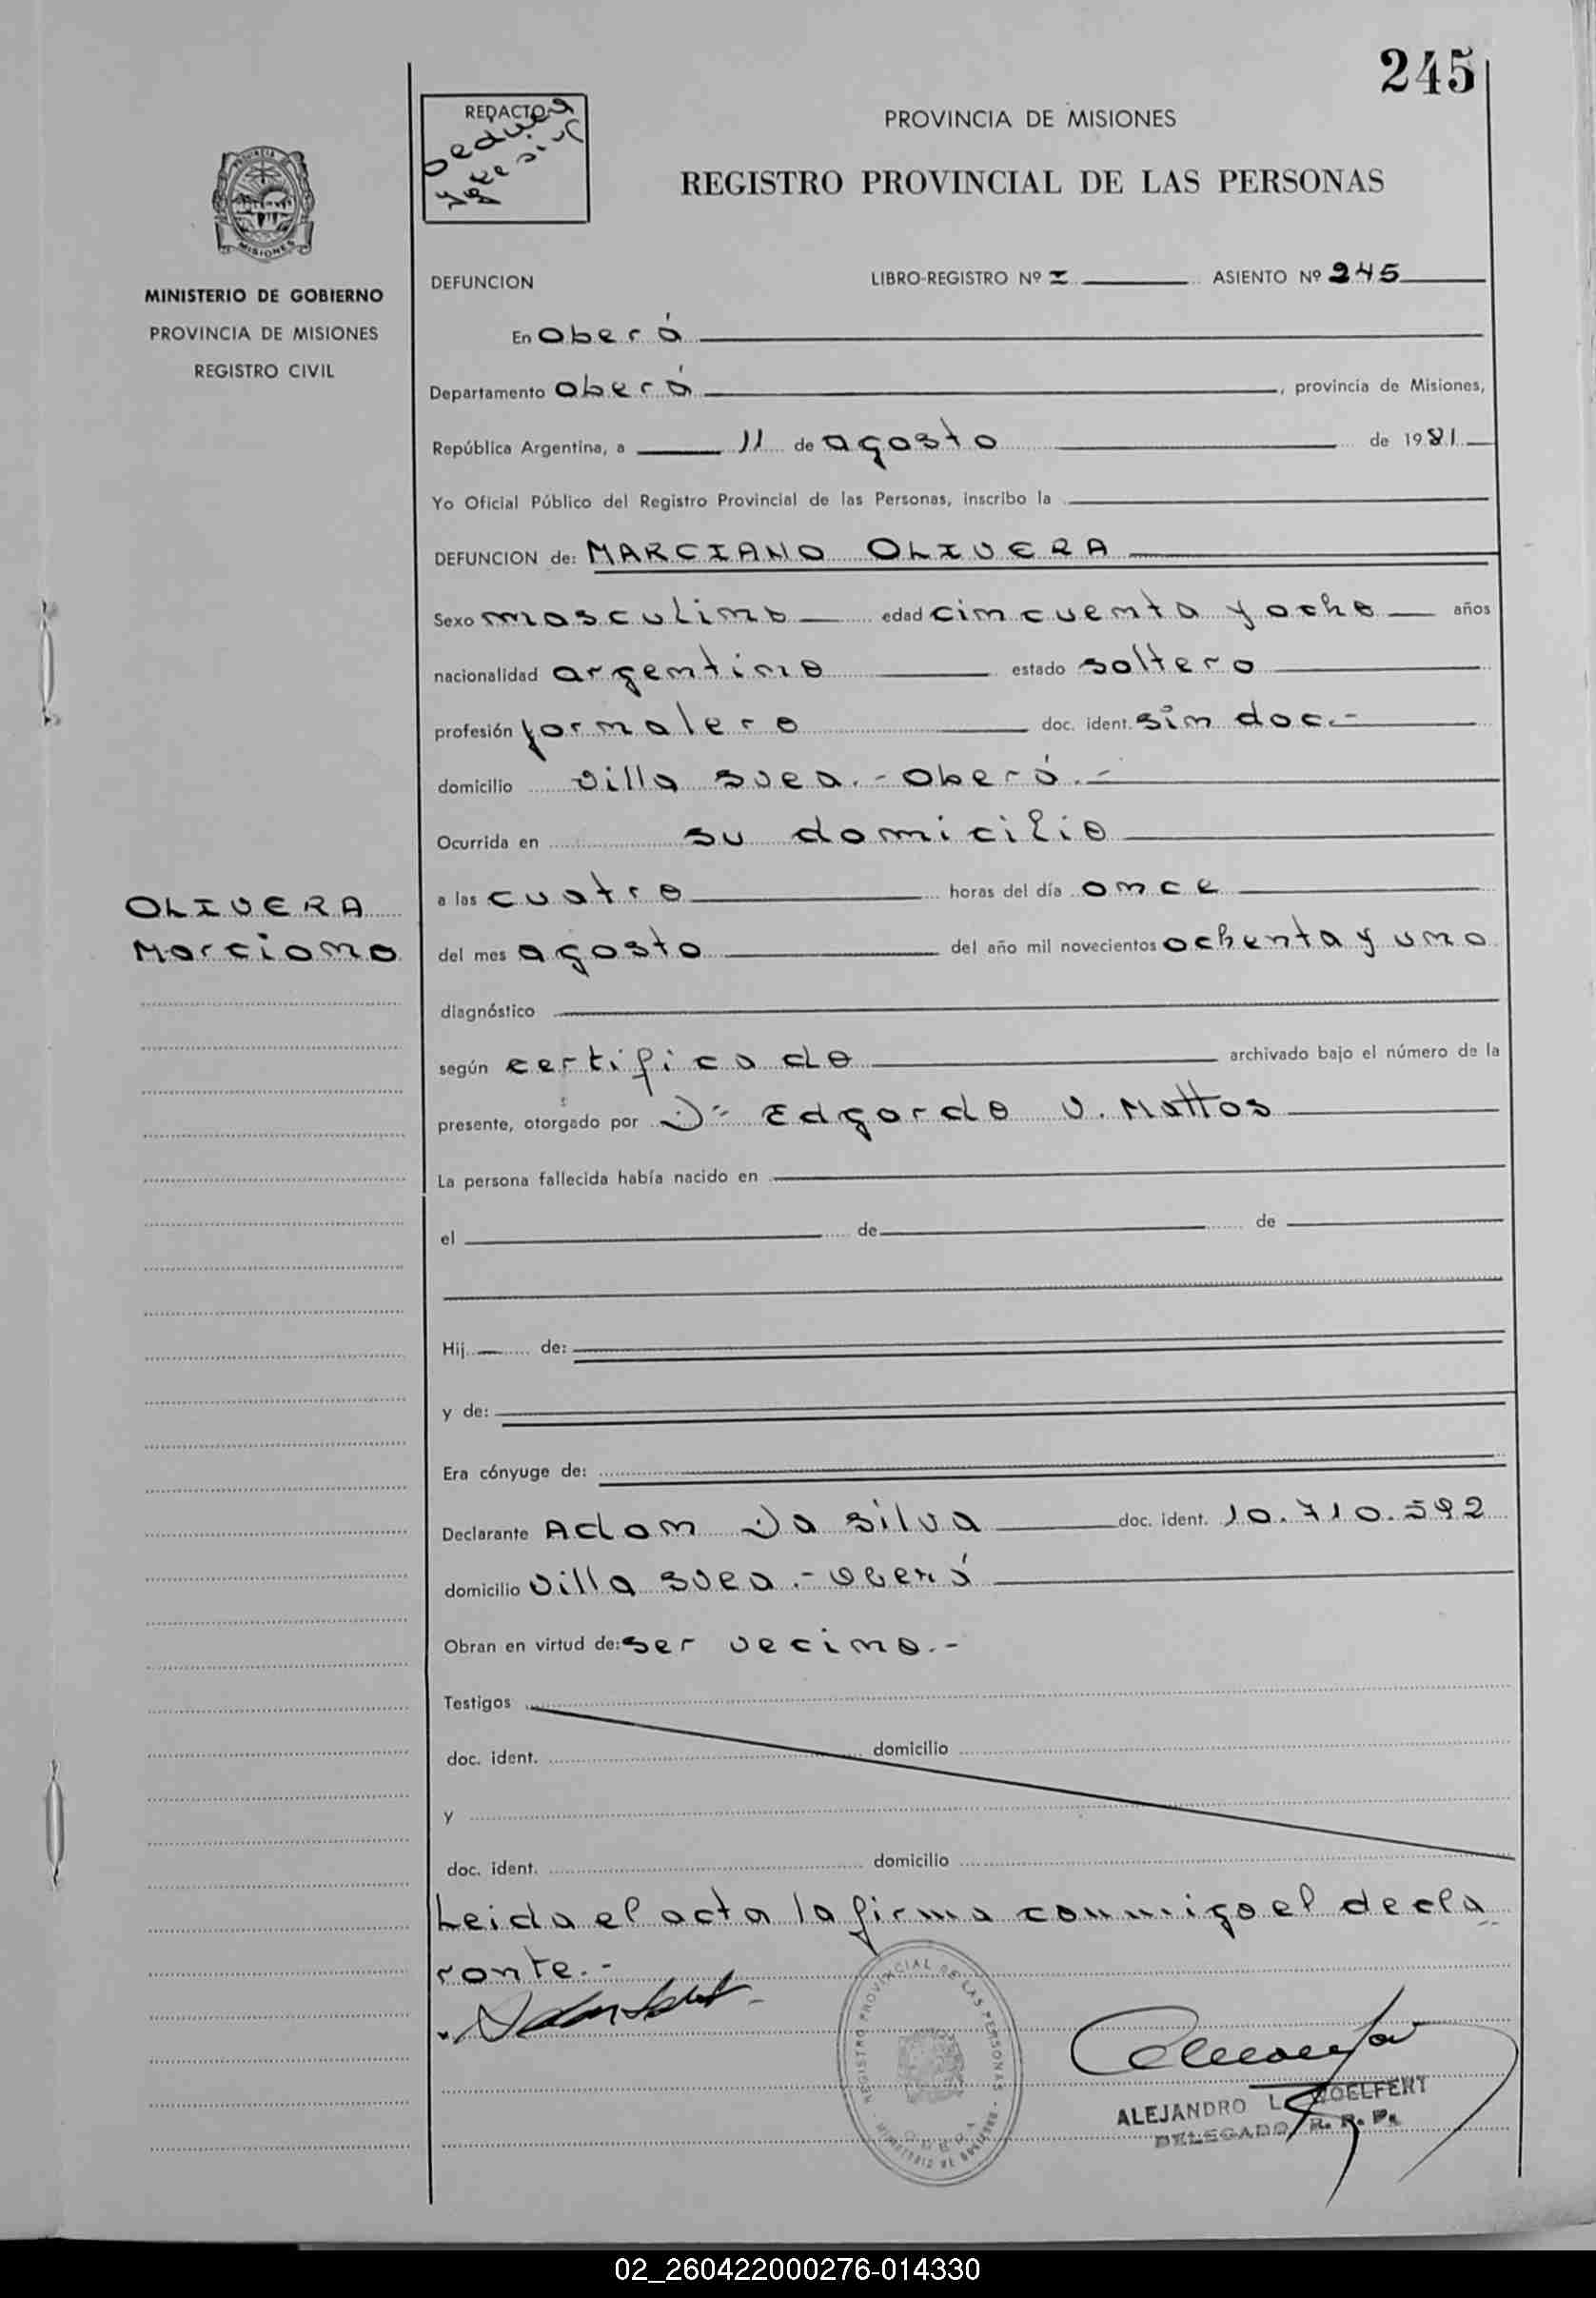 245
REDACTO
PROVINCIA DE MISIONES
REGISTRO PROVINCIAL DE LAS PERSONAS
MISIONES
MINISTERIO DE GOBIERNO
PROVINCIA DE MISIONES
REGISTRO CIVIL
DEFUNCION LIBRO-REGISTRO Nº I ASIENTO Nº 245
En Oberá
Departamento Oberá, provincia de Misiones,
República Argentina, a 11 de agosto de 1981
Yo Oficial Público del Registro Provincial de las Personas, inscribo la
DEFUNCION de: MARCIANO OLIVERA
Sexo masculino edad cincuenta y ocho años
nacionalidad argentino estado soltero
profesión jornalero doc. ident. sin doc.-
domicilio Villa Svea.- Oberá.-
Ocurrida en su domicilio
OLIVERA
Marciano
a las cuatro horas del día once
del mes agosto del año mil novecientos ochenta y uno
diagnóstico
según certificado archivado bajo el número de la
presente, otorgado por Dr Edgardo V. Mattos
La persona fallecida había nacido en
el de de
Hij de:
y de:
Era cónyuge de:
Declarante Adan Da Silva doc. ident. 10.710.592
domicilio Villa Svea.- Oberá
Obran en virtud de: ser vecino.-
Testigos
doc. ident. domicilio
y
doc. ident. domicilio
Leida el acta la firma conmigo el decla
rante.-
REGISTRO PROVINCIAL DE LAS PERSONAS
MINISTERIO DE GOBIERNO
OBERA
ALEJANDRO L. WOELFERT
DELEGADO R. R. P.
02_260422000276-014330